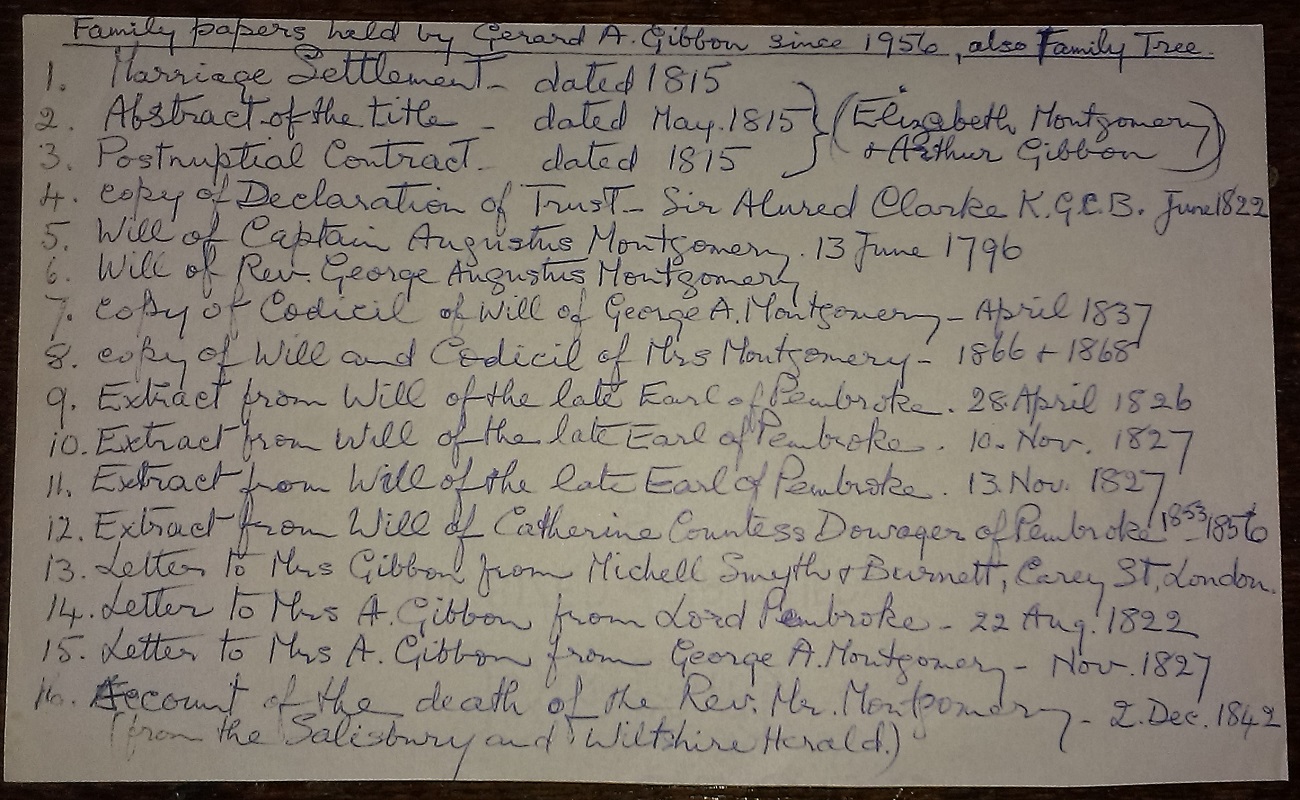 Family papers held by Gerard A. Gibbon since 1956, also Family Tree.
1. Marriage Settlement - dated 1815
2. Abstract of the title - dated May. 1815 } (Elizabeth Montgomery
3. Postnuptial Contract - dated 1815 & Arthur Gibbon)
4. copy of Declaration of Trust - Sir Alured Clarke K.G.C.B. June 1822
5. Will of Captain Augustus Montgomery. 13 June 1796
6. Will of Rev. George Augustus Montgomery
7. copy of Codicil of Will of George A. Montgomery - April 1837
8. copy of Will and Codicil of Mrs Montgomery - 1866 + 1868
9. Extract from Will of the late Earl of Pembroke. 28 April 1826
10. Extract from Will of the late Earl of Pembroke. 10. Nov. 1827
11. Extract from Will of the late Earl of Pembroke. 13. Nov. 1827
12. Extract from Will of Catherine Countess Dowager of Pembroke 1853-1856
13. Letter to Mrs Gibbon from Michell Smyth & Burnett, Carey St, London.
14. Letter to Mrs A. Gibbon from Lord Pembroke - 22 Aug. 1822
15. Letter to Mrs A. Gibbon from George A. Montgomery - Nov. 1827
16. Account of the death of the Rev. Mr. Montgomery - 2. Dec. 1842
(from the Salisbury and Wiltshire Herald.)